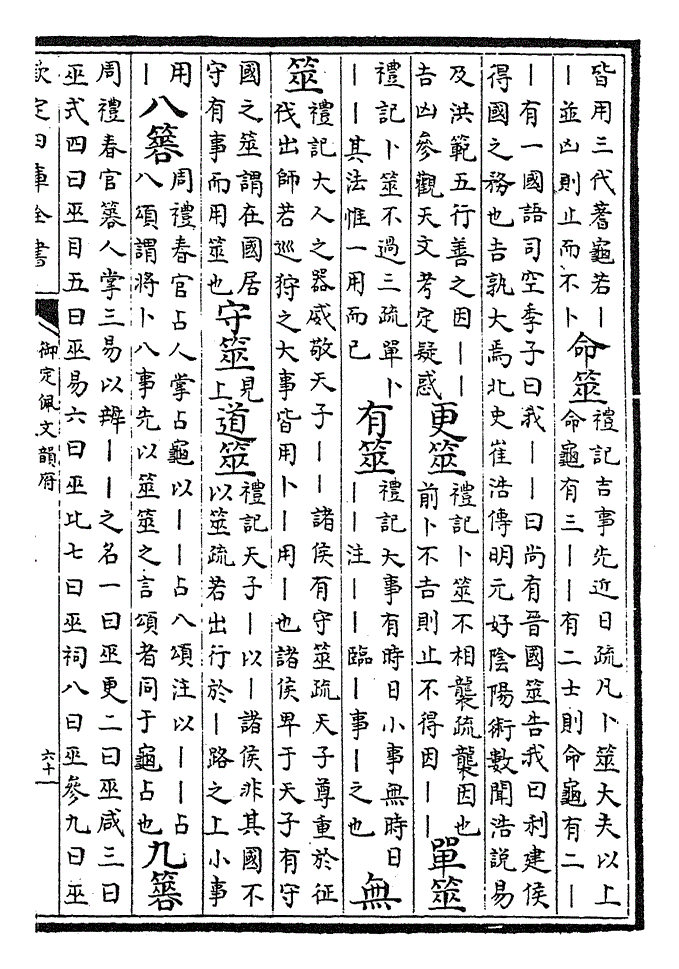 皆用三代蓍龜若｜
｜並凶則止而不卜
命筮
禮記吉事先近日疏凡卜筮大夫以上
命龜有三｜｜有二士則命龜有二｜
｜有一國語司空季子曰我｜｜曰尚有晉國筮告我曰利建侯
得國之務也吉孰大焉北史崔浩傳明元好陰陽術數聞浩說易
及洪範五行善之因｜｜
吉凶參觀天文考定疑惑
更筮
禮記卜筮不相襲疏襲因也
前卜不吉則止不得因｜｜
單筮
禮記卜筮不過三疏單卜
｜｜其法惟一用而已
有筮
禮記大事有時日小事無時日
｜｜注｜｜臨｜事｜之也
無
筮
禮記大人之器威敬天子｜｜諸侯有守筮疏天子尊重於征
伐出師若巡狩之大事皆用卜｜用｜也諸侯卑于天子有守
國之筮謂在國居
守有事而用筮也
守筮
見
上
道筮
禮記天子｜以｜諸侯非其國不
以筮疏若出行於｜路之上小事
用
｜
八簭
周禮春官占人掌占龜以｜｜占八頌注以｜｜占
八頌謂將卜八事先以筮筮之言頌者同于龜占也
九簭
周禮春官簭人掌三易以辨｜｜之名一曰巫更二曰巫咸三曰
巫式四曰巫目五曰巫易六曰巫比七曰巫祠八曰巫參九曰巫
欽定四庫全書
御定佩文韻府
六十